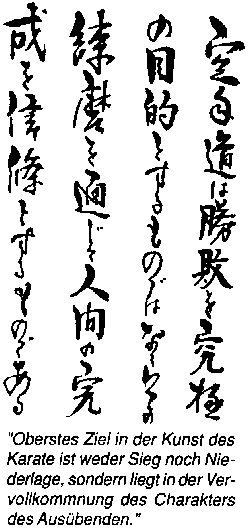 空手道は勝敗を究極
の目的とするものではなくその
練磨を通じて人間の完
成を信條とするものである
"Oberstes Ziel in der Kunst des
Karate ist weder Sieg noch Nie-
derlage, sondern liegt in der Ver-
vollkommnung des Charakters
des Ausübenden."